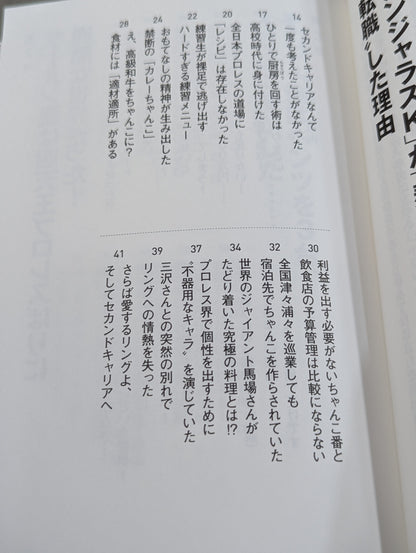 ンジャラスK」が
転職〟した理由
セカンドキャリアなんて
一度も考えたことがなかった
14
ひとりで厨房を回す術は
高校時代に身に付けた
17
全日本プロレスの道場に
「レシピ」は存在しなかった
20
練習生が裸足で逃げ出す
ハードすぎる練習メニュー
22
おもてなしの精神が生み出した
禁断の「カレーちゃんこ」
24
え、高級和牛をちゃんこに?
食材には「適材適所」がある
28
利益を出す必要がないちゃんこ番と
飲食店の予算管理は比較にならない
30
全国津々浦々を巡業しても
宿泊先でちゃんこを作らされていた
32
世界のジャイアント馬場さんが
たどり着いた究極の料理とは!?
34
プロレス界で個性を出すために
〝不器用なキャラ〟を演じていた
37
三沢さんとの突然の別れで
リングへの情熱を失った
39
さらば愛するリングよ、
そしてセカンドキャリアへ
41